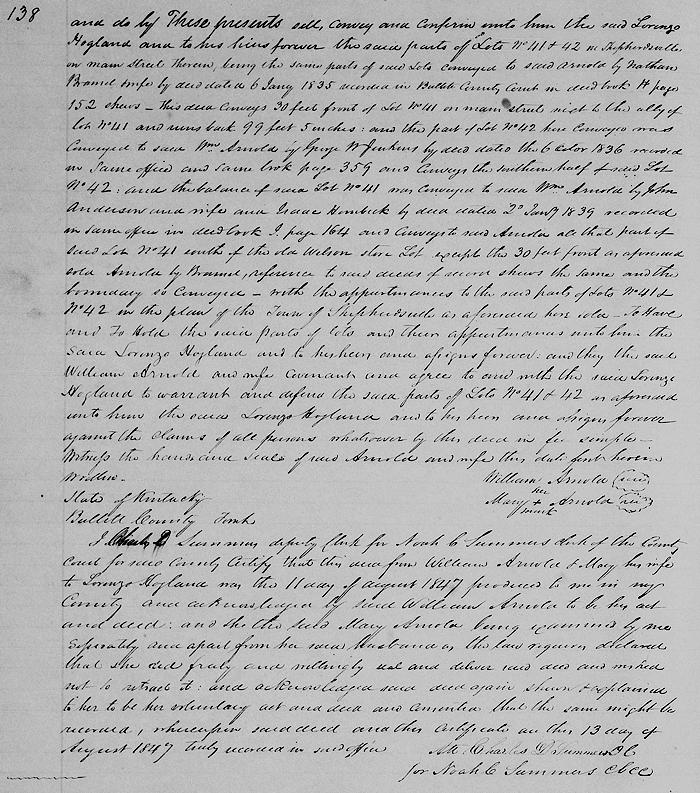 138
and do by These presents sell, convey and confirm unto him the said Lorenzo
Hogland and to his hiers forever the said parts of Lots No 41 & 42 in Shepherdsville
on main street therein, being the same parts of said Lots conveyed to said Arnold by Nathan
Bramel & wife by deed dated 6 Jany 1835 recorded in Bullitt County Court in deed book H page
152 shews – this deed conveys 30 feet front of Lot No 41 on main street next to the ally of
lot No 41 and runs back 99 feet 5 inches: and the part of Lot No 42 here conveyed was
conveyed to said Wm Arnold by George W Jenkins by deed dated the 6 1836 recorded
in same office and same book page 359 and conveys the southern half of said Lot
No 42: and the balance of said Lot No 41 was conveyed to said Wm Arnold by John
Anderson and wife and Isaac Hornbeck by deed dated 2d Jany 1839 recorded
in same office in deed book I. page 164 and conveys to said Arnold all that part of
said Lot No 41 south of the old Wilson store Lot except the 30 feet front as aforesaid
sold Arnold by Bramel, reference to said deeds of record shews the same and the
boundary so conveyed – with the appurtenances to the said parts of Lots No 41 &
No 42 in the plan of the Town of Shepherdsville as aforesaid here sold – To Have
and To Hold the said parts of lots and their appurtenances unto him the
said Lorenzo Hogland and to his heirs and assigns forever: and they the said
William Arnold and wife Covenant and agree to and with the said Lorenzo
Hogland to warrant and defend the said parts of Lots No 41 & 42 as aforesaid
unto him the said Lorenzo Hogland and to his heirs and assigns forever
against the claims of all persons whatsoever by this deed in fee simple –
Witness the hands and seals of said Arnold and wife this date first herein
written. William Arnold
State of Kentucky Mary her + mark Arnold
Bullitt County Towit
I Charles D Summers deputy Clerk for Noah C Summers clerk of the County
Court for said County Certify that this deed from William Arnold & Mary his wife
to Lorenzo Hogland was the 11 day of August 1847 produced to me in my
County and acknowledged by said William Arnold to be his act
and deed: and she the said Mary Arnold being examined by me
seperately and apart from her said husband as the law requires declared
that she did freely and willingly seal and deliver said deed and wished
not to retract it: and acknowledged said deed again shewn & explained
to her to be her voluntary act and deed and consented that the same might be
recorded, whereupon said deed and this Certificate are this 13 day of
August 1847 truly recorded in said office Att. Charles D Summers DC
for Noah C Summers CBCC